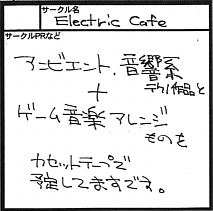 サークル名
Electric Cafe
サークルPRなど
アンビエント、音響系
テクノ作品と
+
ゲーム音楽アレンジ
ものを
カセットテープで
予定してますです。